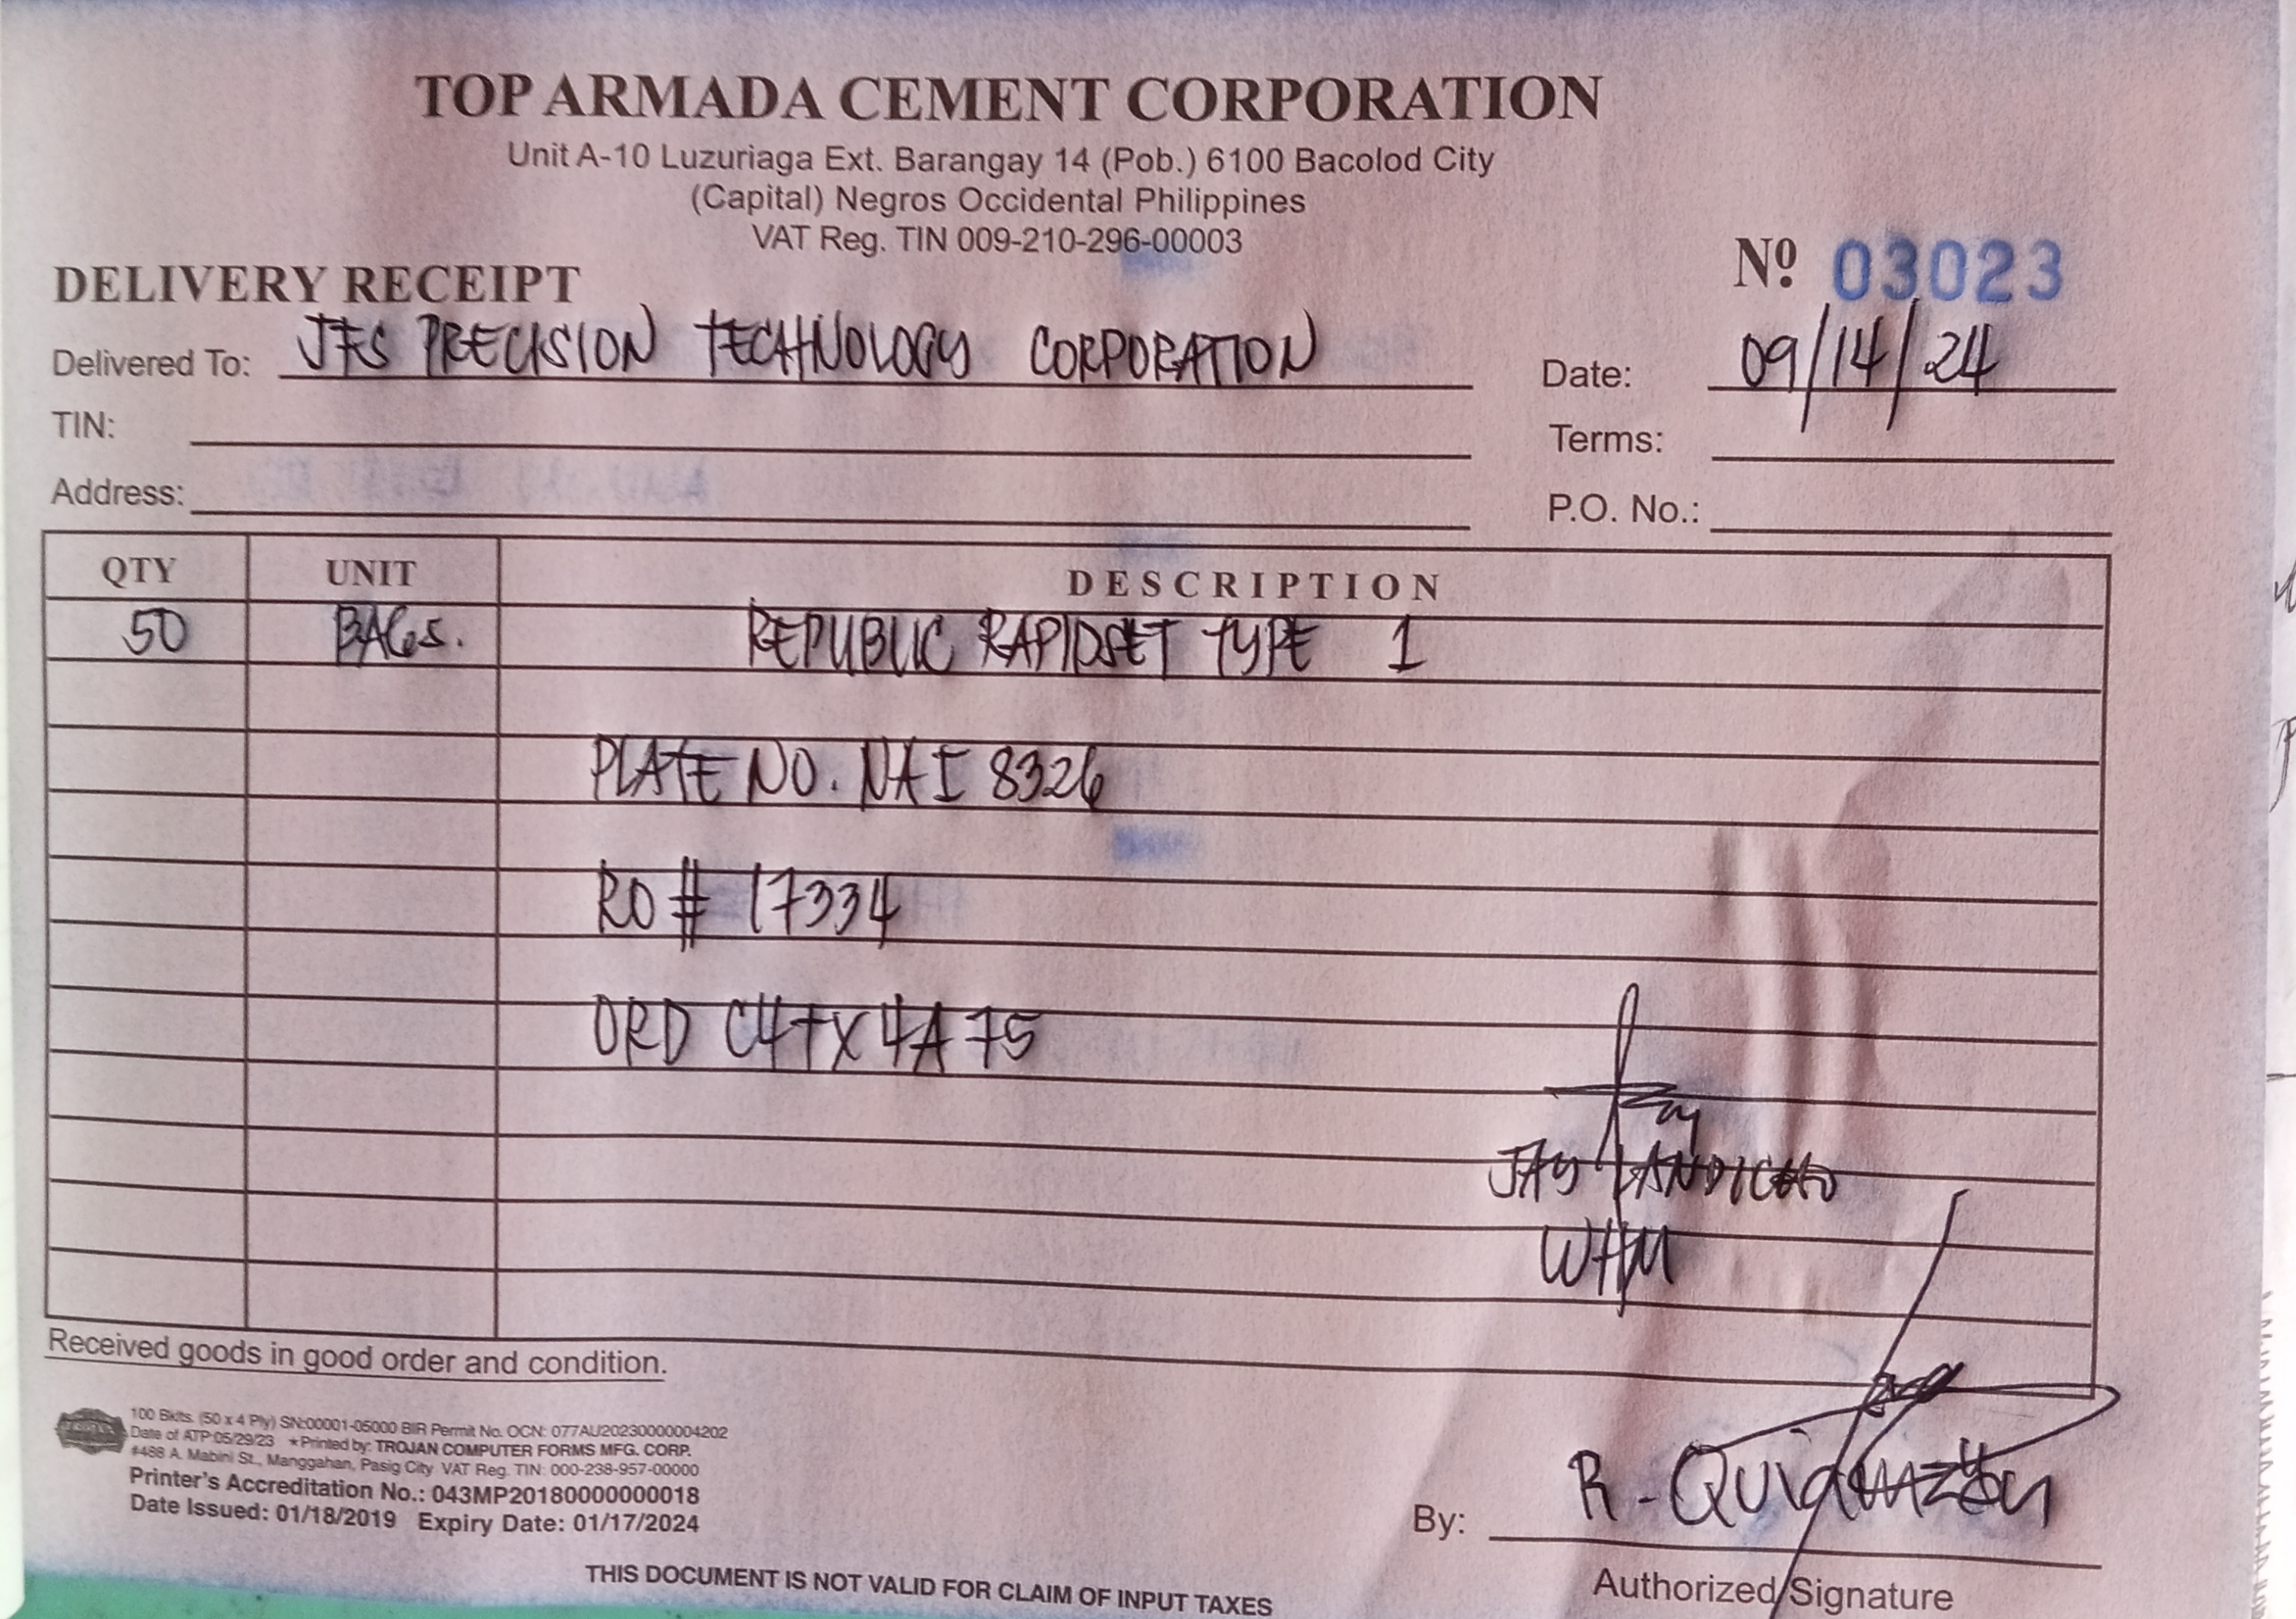 TOP ARMADA CEMENT CORPORATION
Unit A-10 Luzuriaga Ext. Barangay 14 (Pob.) 6100 Bacolod City
(Capital) Negros Occidental Philippines
VAT Reg. TIN 009-210-296-00003
DELIVERY RECEIPT
Nº 03023
Delivered To: JFS PRECISION TECHNOLOGY CORPORATION
Date: 09/14/24
TIN:
Terms:
Address:
P.O. No.:
QTY UNIT DESCRIPTION
50 BAGS. REPUBLIC RAPIDSET TYPE 1
PLATE NO. NAI 8326
RO # 17334
ORD C47X4A75
JAY LANDICHO
WHM
Received goods in good order and condition.
100 Bklts. (50 x 4 Ply) SN:00001-05000 BIR Permit No. OCN: 077AU20230000004202
Date of ATP:05/29/23 ★Printed by: TROJAN COMPUTER FORMS MFG. CORP.
#488 A. Mabini St., Manggahan, Pasig City VAT Reg. TIN: 000-238-957-00000
Printer's Accreditation No.: 043MP20180000000018
Date Issued: 01/18/2019 Expiry Date: 01/17/2024
By: R. Quiamzon
Authorized Signature
THIS DOCUMENT IS NOT VALID FOR CLAIM OF INPUT TAXES